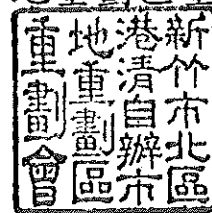 新竹市北區
港清自辦市
地重劃區
重劃會